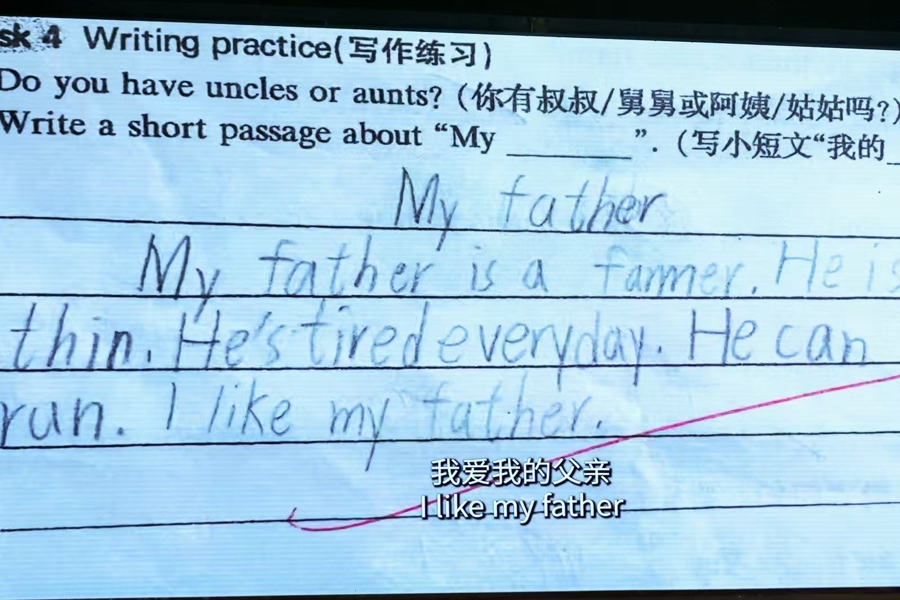 sk 4 Writing practice(写作练习)
Do you have uncles or aunts? (你有叔叔/舅舅或阿姨/姑姑吗?)
Write a short passage about “My ______”. (写小短文“我的
My father
My father is a farmer. He is
thin. He's tired everyday. He can
run. I like my father.
我爱我的父亲
I like my father